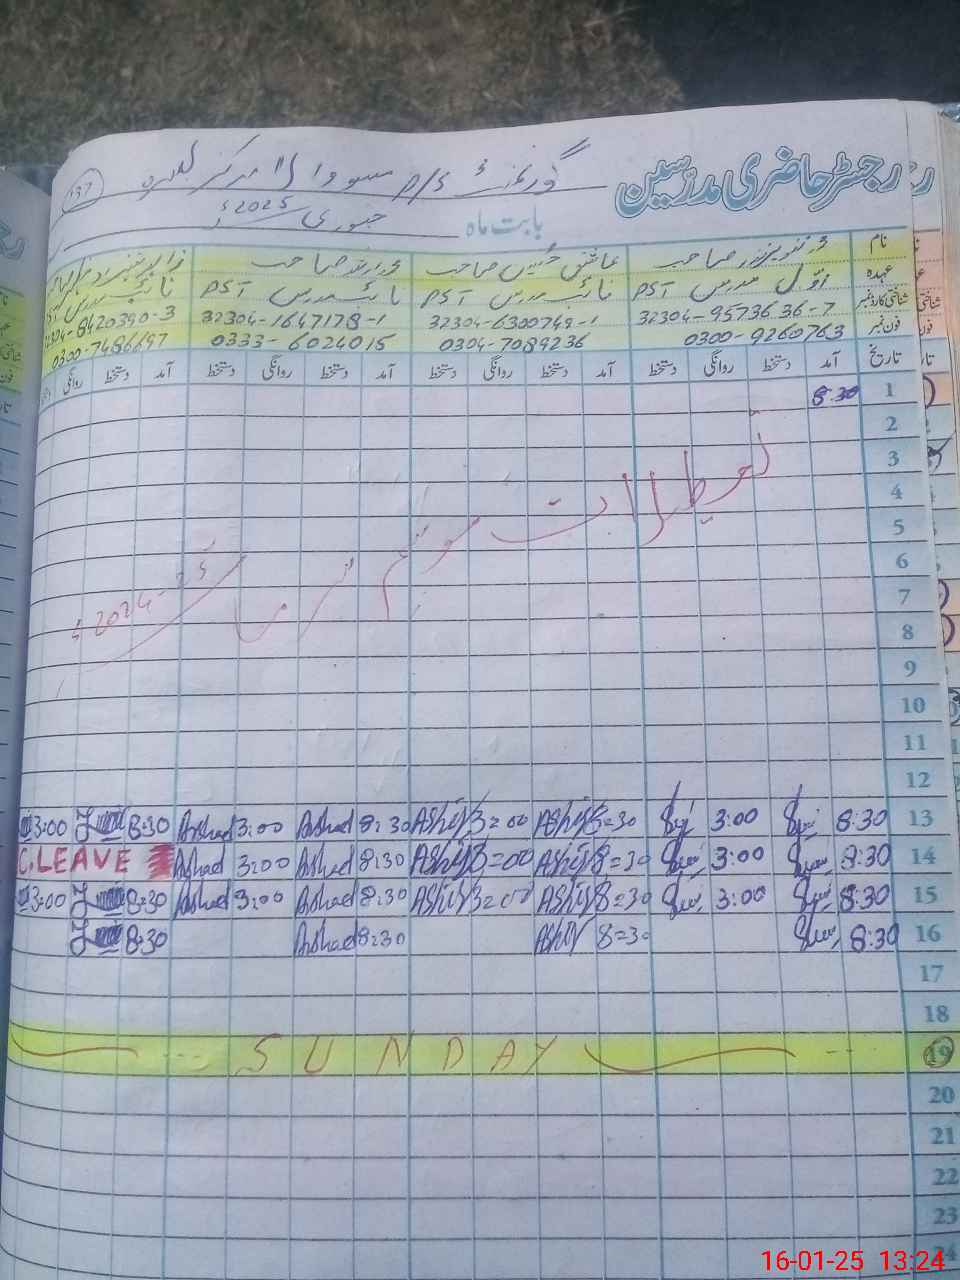 رجسٹر حاضری مدرسین گورنمنٹ P/S مرکز 137
بابت ماہ جنوری 2025ء
نام صاحب عاشق حسین صاحب محمد ارشد صاحب
عہدہ اوّل مدرس PST نائب مدرس PST نائب مدرس PST نائب مدرس
شناختی کارڈ نمبر 32304-9573636-7 32304-6300749-1 32304-1647178-1 32304-8420390-3
فون نمبر 0300-9260763 0304-7089236 0333-6024015 0300-7486697
تاریخ آمد دستخط روانگی دستخط آمد دستخط روانگی دستخط آمد دستخط روانگی دستخط آمد دستخط روانگی
1 8:30
2
3
4
5
تعطیلات موسم سرما 2024-25ء
6
7
8
9
10
11
12
13 8:30 3:00 Ashiq 8=30 Ashiq 3=00 Arshad 8:30 Arshad 3:00 8:30 3:00
14 8:30 3:00 Ashiq 8=30 Ashiq 3=00 Arshad 8:30 Arshad 3:00 C.LEAVE
15 8:30 3:00 Ashiq 8=30 Ashiq 3=00 Arshad 8:30 Arshad 3:00 8:30 3:00
16 8:30 Ashiq 8=30 Arshad 8:30 8:30
17
18
19 SUNDAY
20
21
22
23
24
16-01-25 13:24